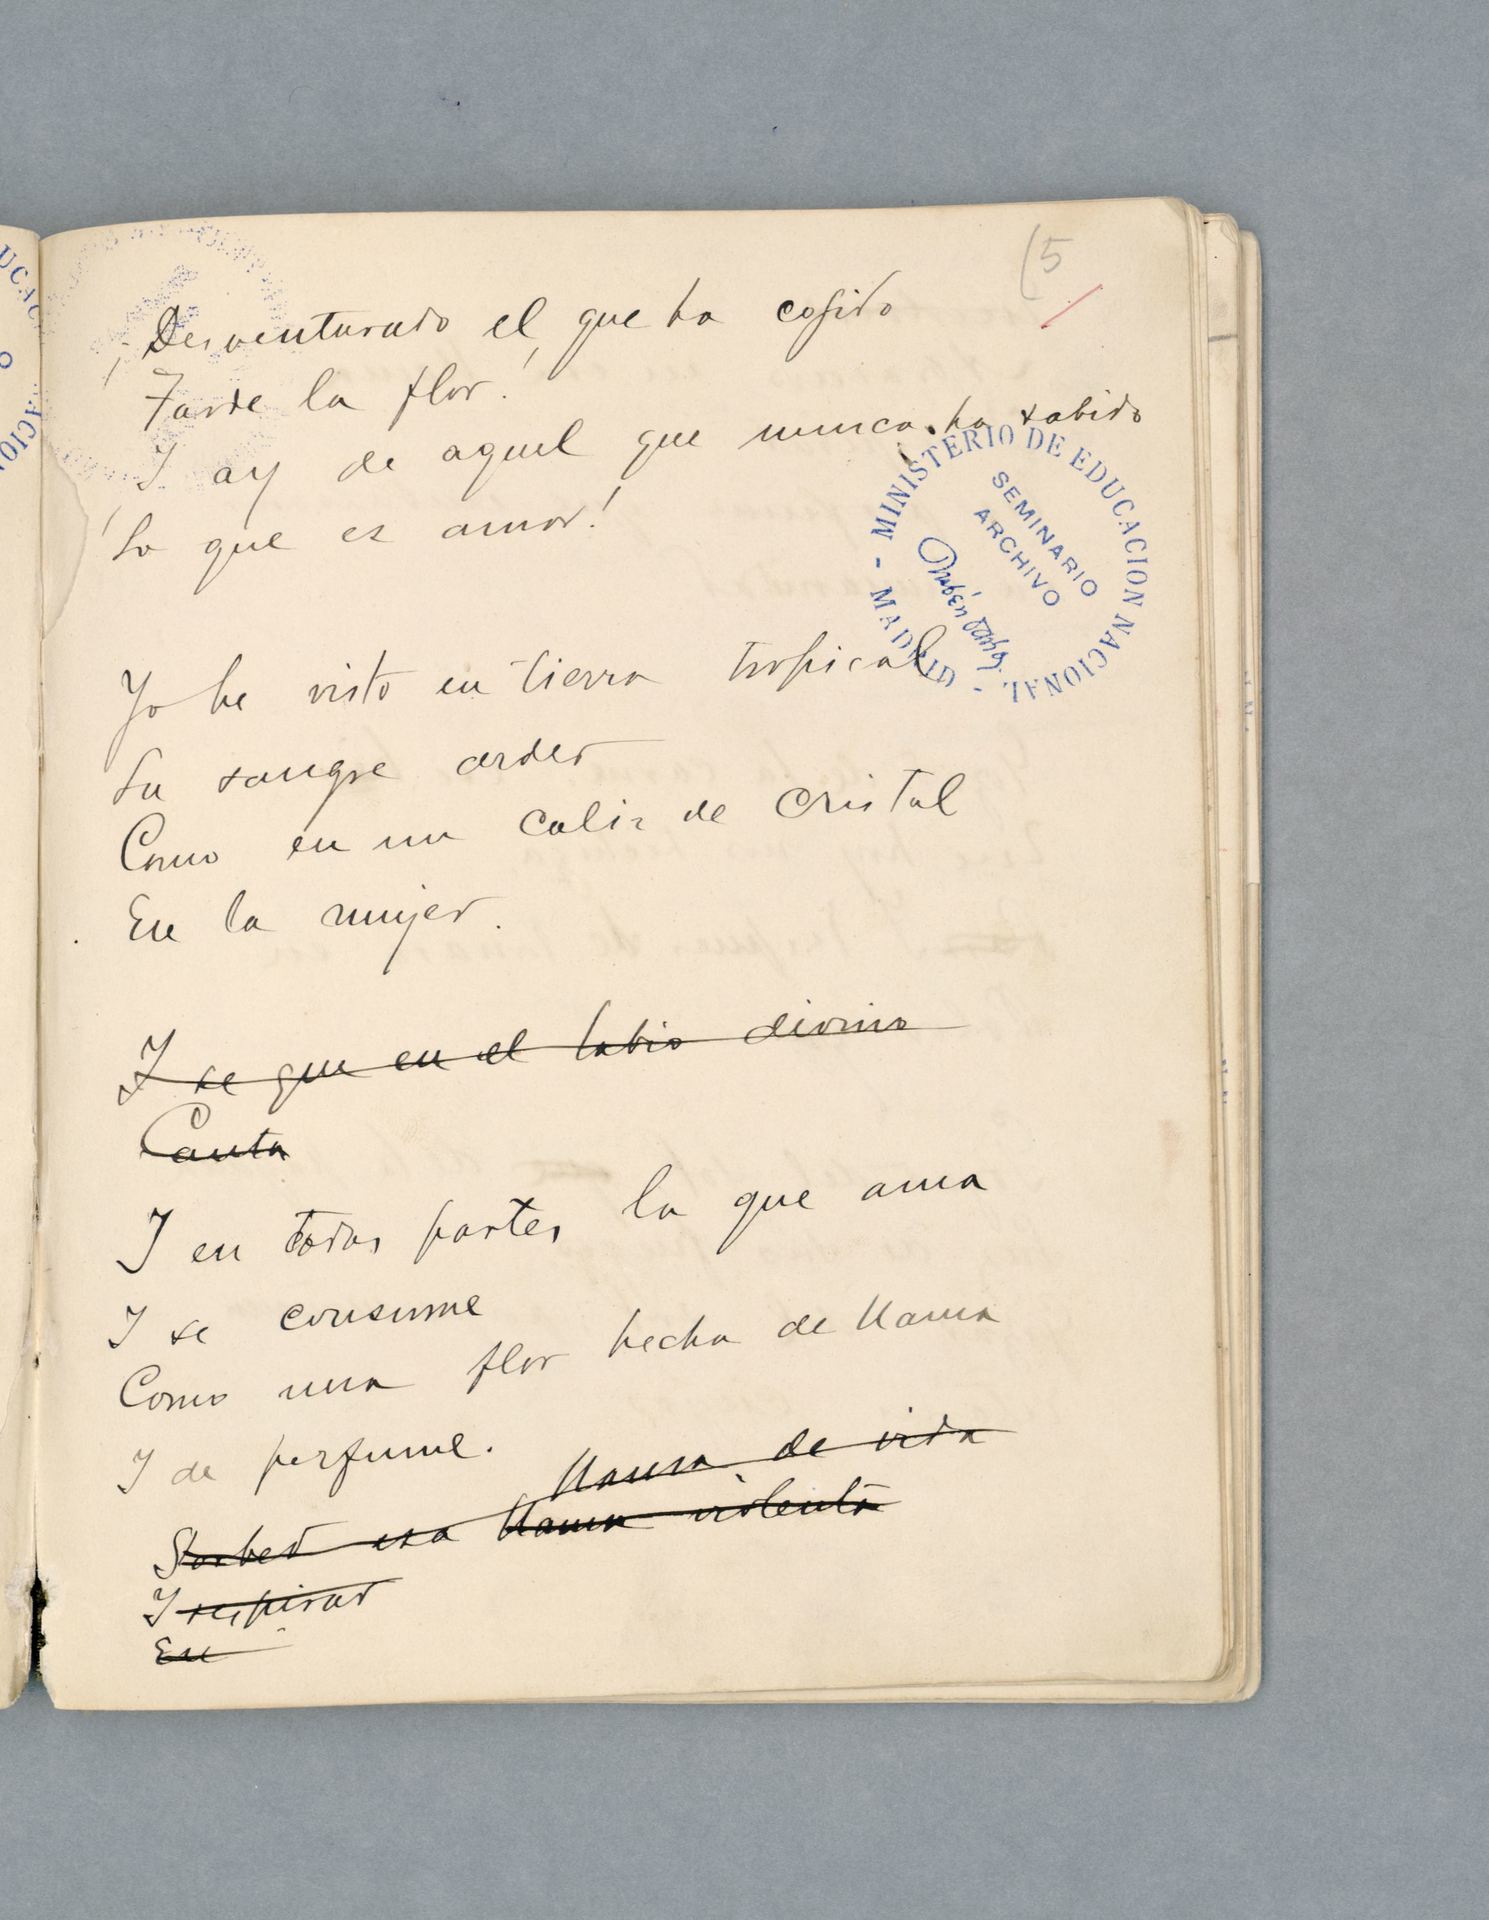 (5
¡Desventurado el que ha cogido
Tarde la flor!
Y ay de aquel que nunca ha sabido
¡Lo que es amor!
MINISTERIO DE EDUCACION NACIONAL - MADRID -
SEMINARIO
ARCHIVO
Rubén Darío
Yo he visto en tierra tropical
La sangre arder
Como en un caliz de cristal
En la mujer.
Y se que en el labio divino
Canta
Y en todas partes la que ama
Y se consume
Como una flor hecha de llama
Y de perfume.
llama de vida
Sorbed esa llama violenta
Y respirad
En